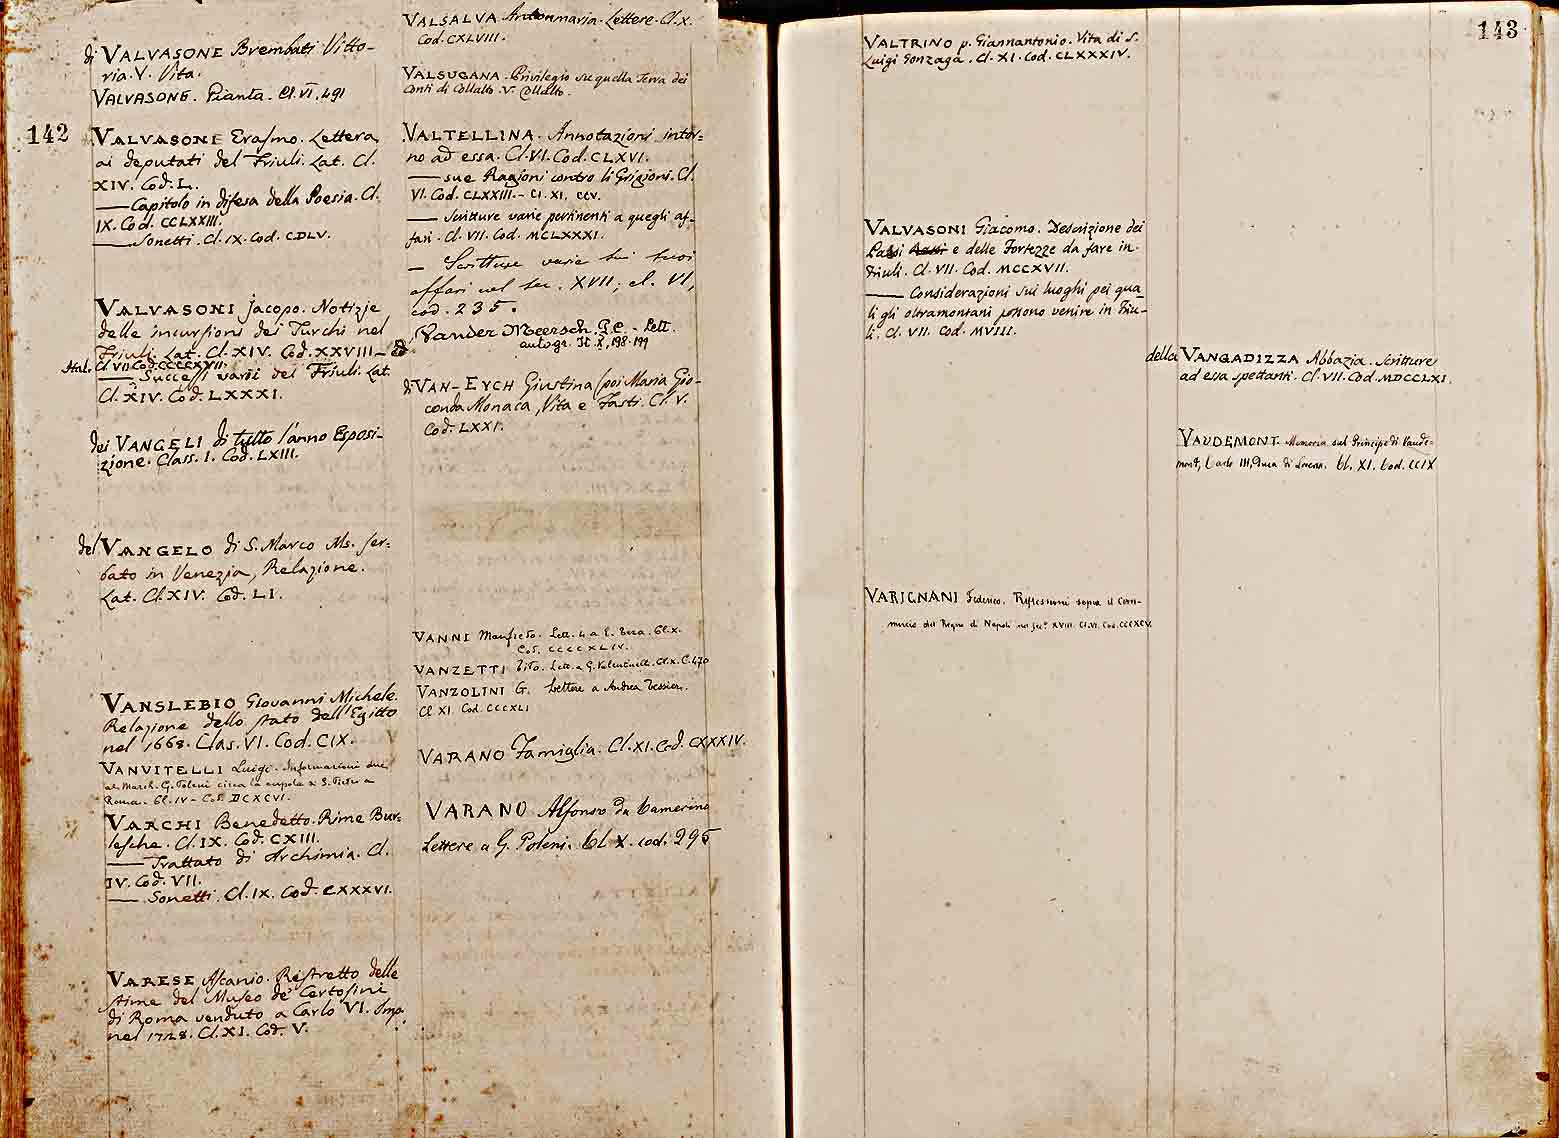 di VALVASONE Brembati Vitto-
ria. V. Vita.
VALVASONE. Pianta. Cl. VI. 491
142
VALVASONE Erasmo. Lettera
ai deputati del Friuli. Lat. Cl.
XIV. Cod. L.
—— Capitolo in difesa della Poesia. Cl.
IX. Cod. CCLXXIII.
—— Sonetti. Cl. IX. Cod. CDLV.
VALVASONI Jacopo. Notizie
delle incursioni dei Turchi nel
Friuli. Lat. Cl. XIV. Cod. XXVIII –
Ital. Cl. VII Cod. CCCCXVII.
—— Successi varii del Friuli. Lat.
Cl. XIV. Cod. LXXXI.
dei VANGELI di tutto l'anno Esposi-
zione. Class. I. Cod. LXIII.
del VANGELO di S. Marco Ms. ser-
bato in Venezia, Relazione.
Lat. Cl. XIV. Cod. LI.
VANSLEBIO Giovanni Michele.
Relazione dello stato dell'Egitto
nel 1668. Clas. VI. Cod. CIX.
VANVITELLI Luigi. Informazioni due
al March. G. Poleni circa la cupola di S. Pietro a
Roma. Cl. IV – Cod. DCXCVI.
VARCHI Benedetto. Rime Bur-
lesche. Cl. IX. Cod. CXIII.
—— Trattato di Archimia. Cl.
IV. Cod. VII.
—— Sonetti. Cl. IX. Cod. CXXXVI.
VARESE Ascanio. Ristretto delle
stime del Museo de' Certosini
di Roma venduto a Carlo VI. Imp.
nel 1728. Cl. XI. Cod. V.
VALSALVA Antonmaria. Lettere. Cl. X.
Cod. CXLVIII.
VALSUGANA. Privilegio su quella Terra dei
Conti di Collalto. V. Collalto.
VALTELLINA. Annotazioni intor-
no ad essa. Cl. VI. Cod. CLXVI.
—— sue Ragioni contro li Grigioni. Cl.
VI. Cod. CLXXIII. – Cl. XI. CCV.
—— Scritture varie pertinenti a quegli af-
fari. Cl. VII. Cod. MCLXXXI.
— Scritture varie sui suoi
affari nel sec. XVII; cl. VI,
cod. 235.
Vander Meersch. G. C. – Lett.
autogr. It. X, 198-199
di VAN-EYCH Giustina (poi Maria Gio-
conda Monaca, Vita e Fasti. Cl. V.
Cod. LXXI.
VANNI Manfredo. Lett. 4 a E. Teza. Cl. X.
Cod. CCCCXLIV.
VANZETTI Tito. Lett. a G. Valentinelli. Cl. X. C. 470
VANZOLINI G. Lettere a Andrea Tessier.
Cl XI Cod. CCCXLI
VARANO Famiglia. Cl. XI. Cod. CXXXIV.
VARANO Alfonso da Camerino
Lettere a G. Poleni. Cl. X. cod. 295
143
VALTRINO p. Giannantonio. Vita di S.
Luigi Gonzaga. Cl. XI. Cod. CLXXXIV.
VALVASONI Giacomo. Descrizione dei
Passi e delle Fortezze da fare in
Friuli. Cl. VII. Cod. MCCXVII.
—— Considerazioni sui luoghi pei qua-
li gli oltramontani possono venire in Friu-
li. Cl. VII. Cod. MVIII.
VARIGNANI Federico. Riflessioni sopra il Com-
mercio del Regno di Napoli nel sec.º XVIII. Cl. VI. Cod. CCCXCV.
della VANGADIZZA Abbazia. Scritture
ad essa spettanti. Cl. VII. Cod. MDCCLXI.
VAUDEMONT. Memoria sul Principe di Vaude-
mont, Carlo III, Duca di Lorena. Cl. XI. Cod. CCIX